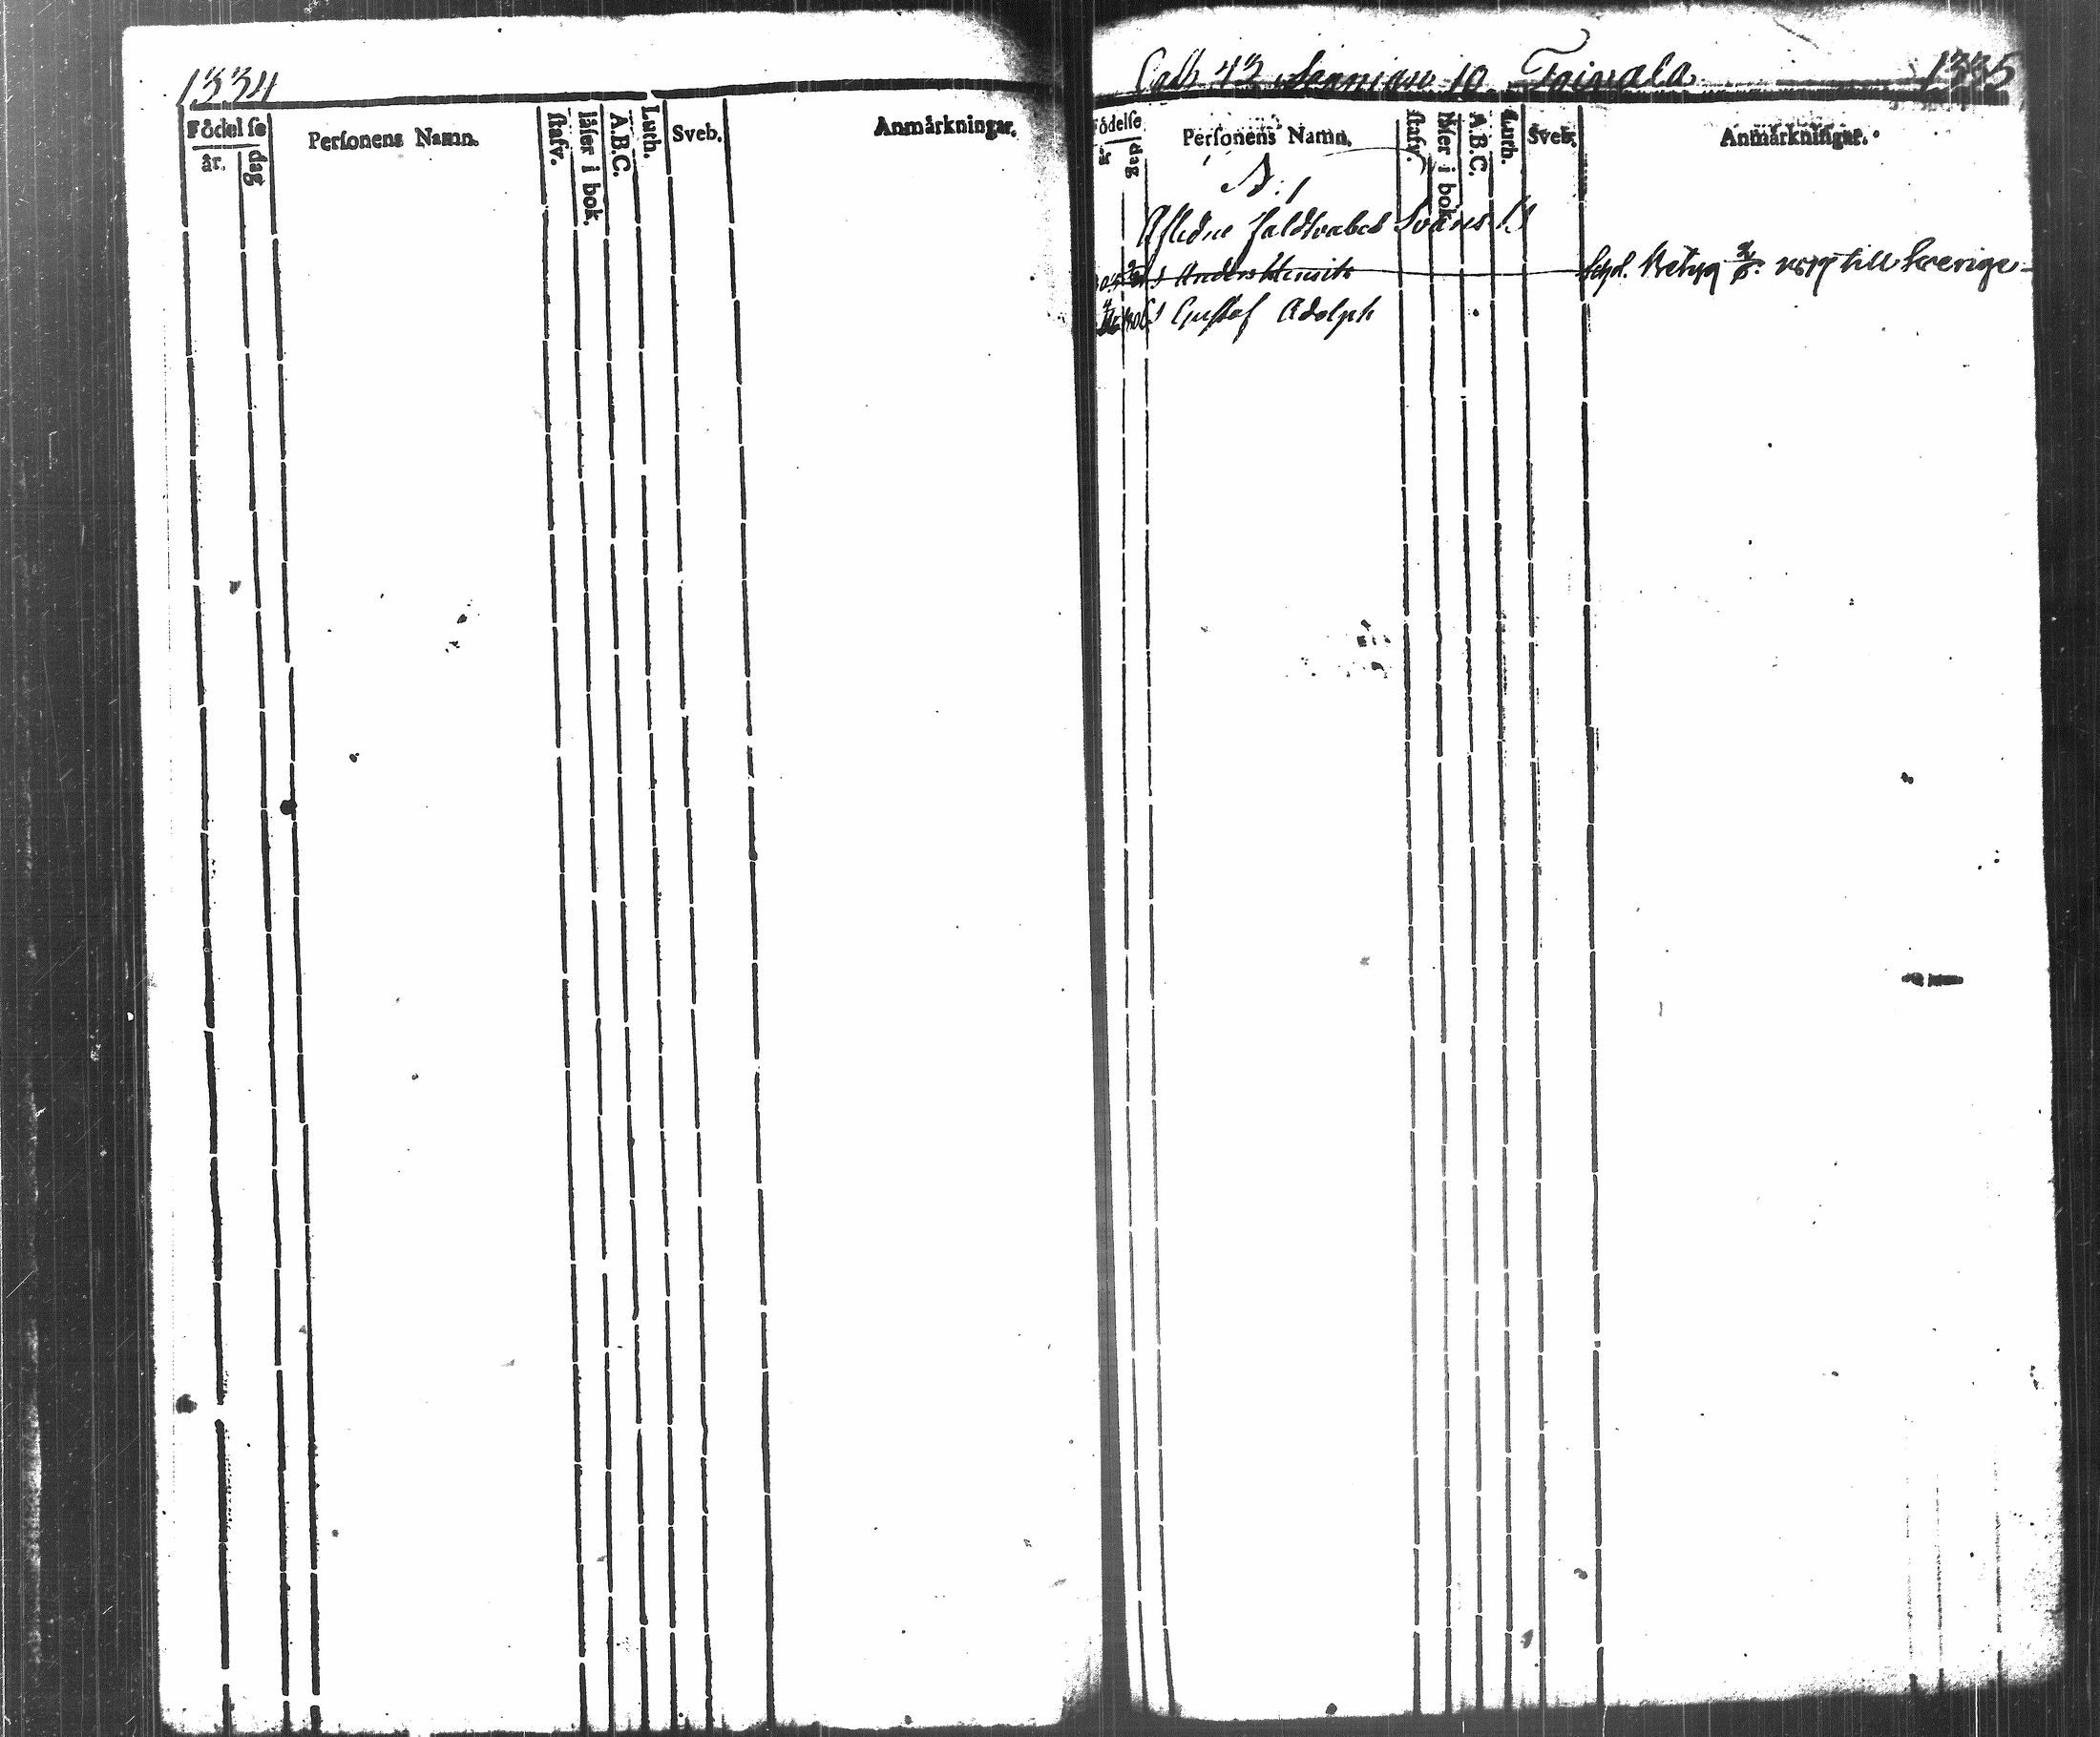 1334
Födelse
år.
dag
Personens Namn.
stafv.
läser i bok.
A.B.C.
Luth.
Sveb.
Anmärkningar.
43 10 Toivala 1335
födelse
år
dag
Personens Namn.
stafv.
läser i bok
A.B.C.
Luth.
Sveb.
Anmärkningar.
N:1
Afledne Svans
Anders Henrik Betyg till Sverige
Gustaf Adolph